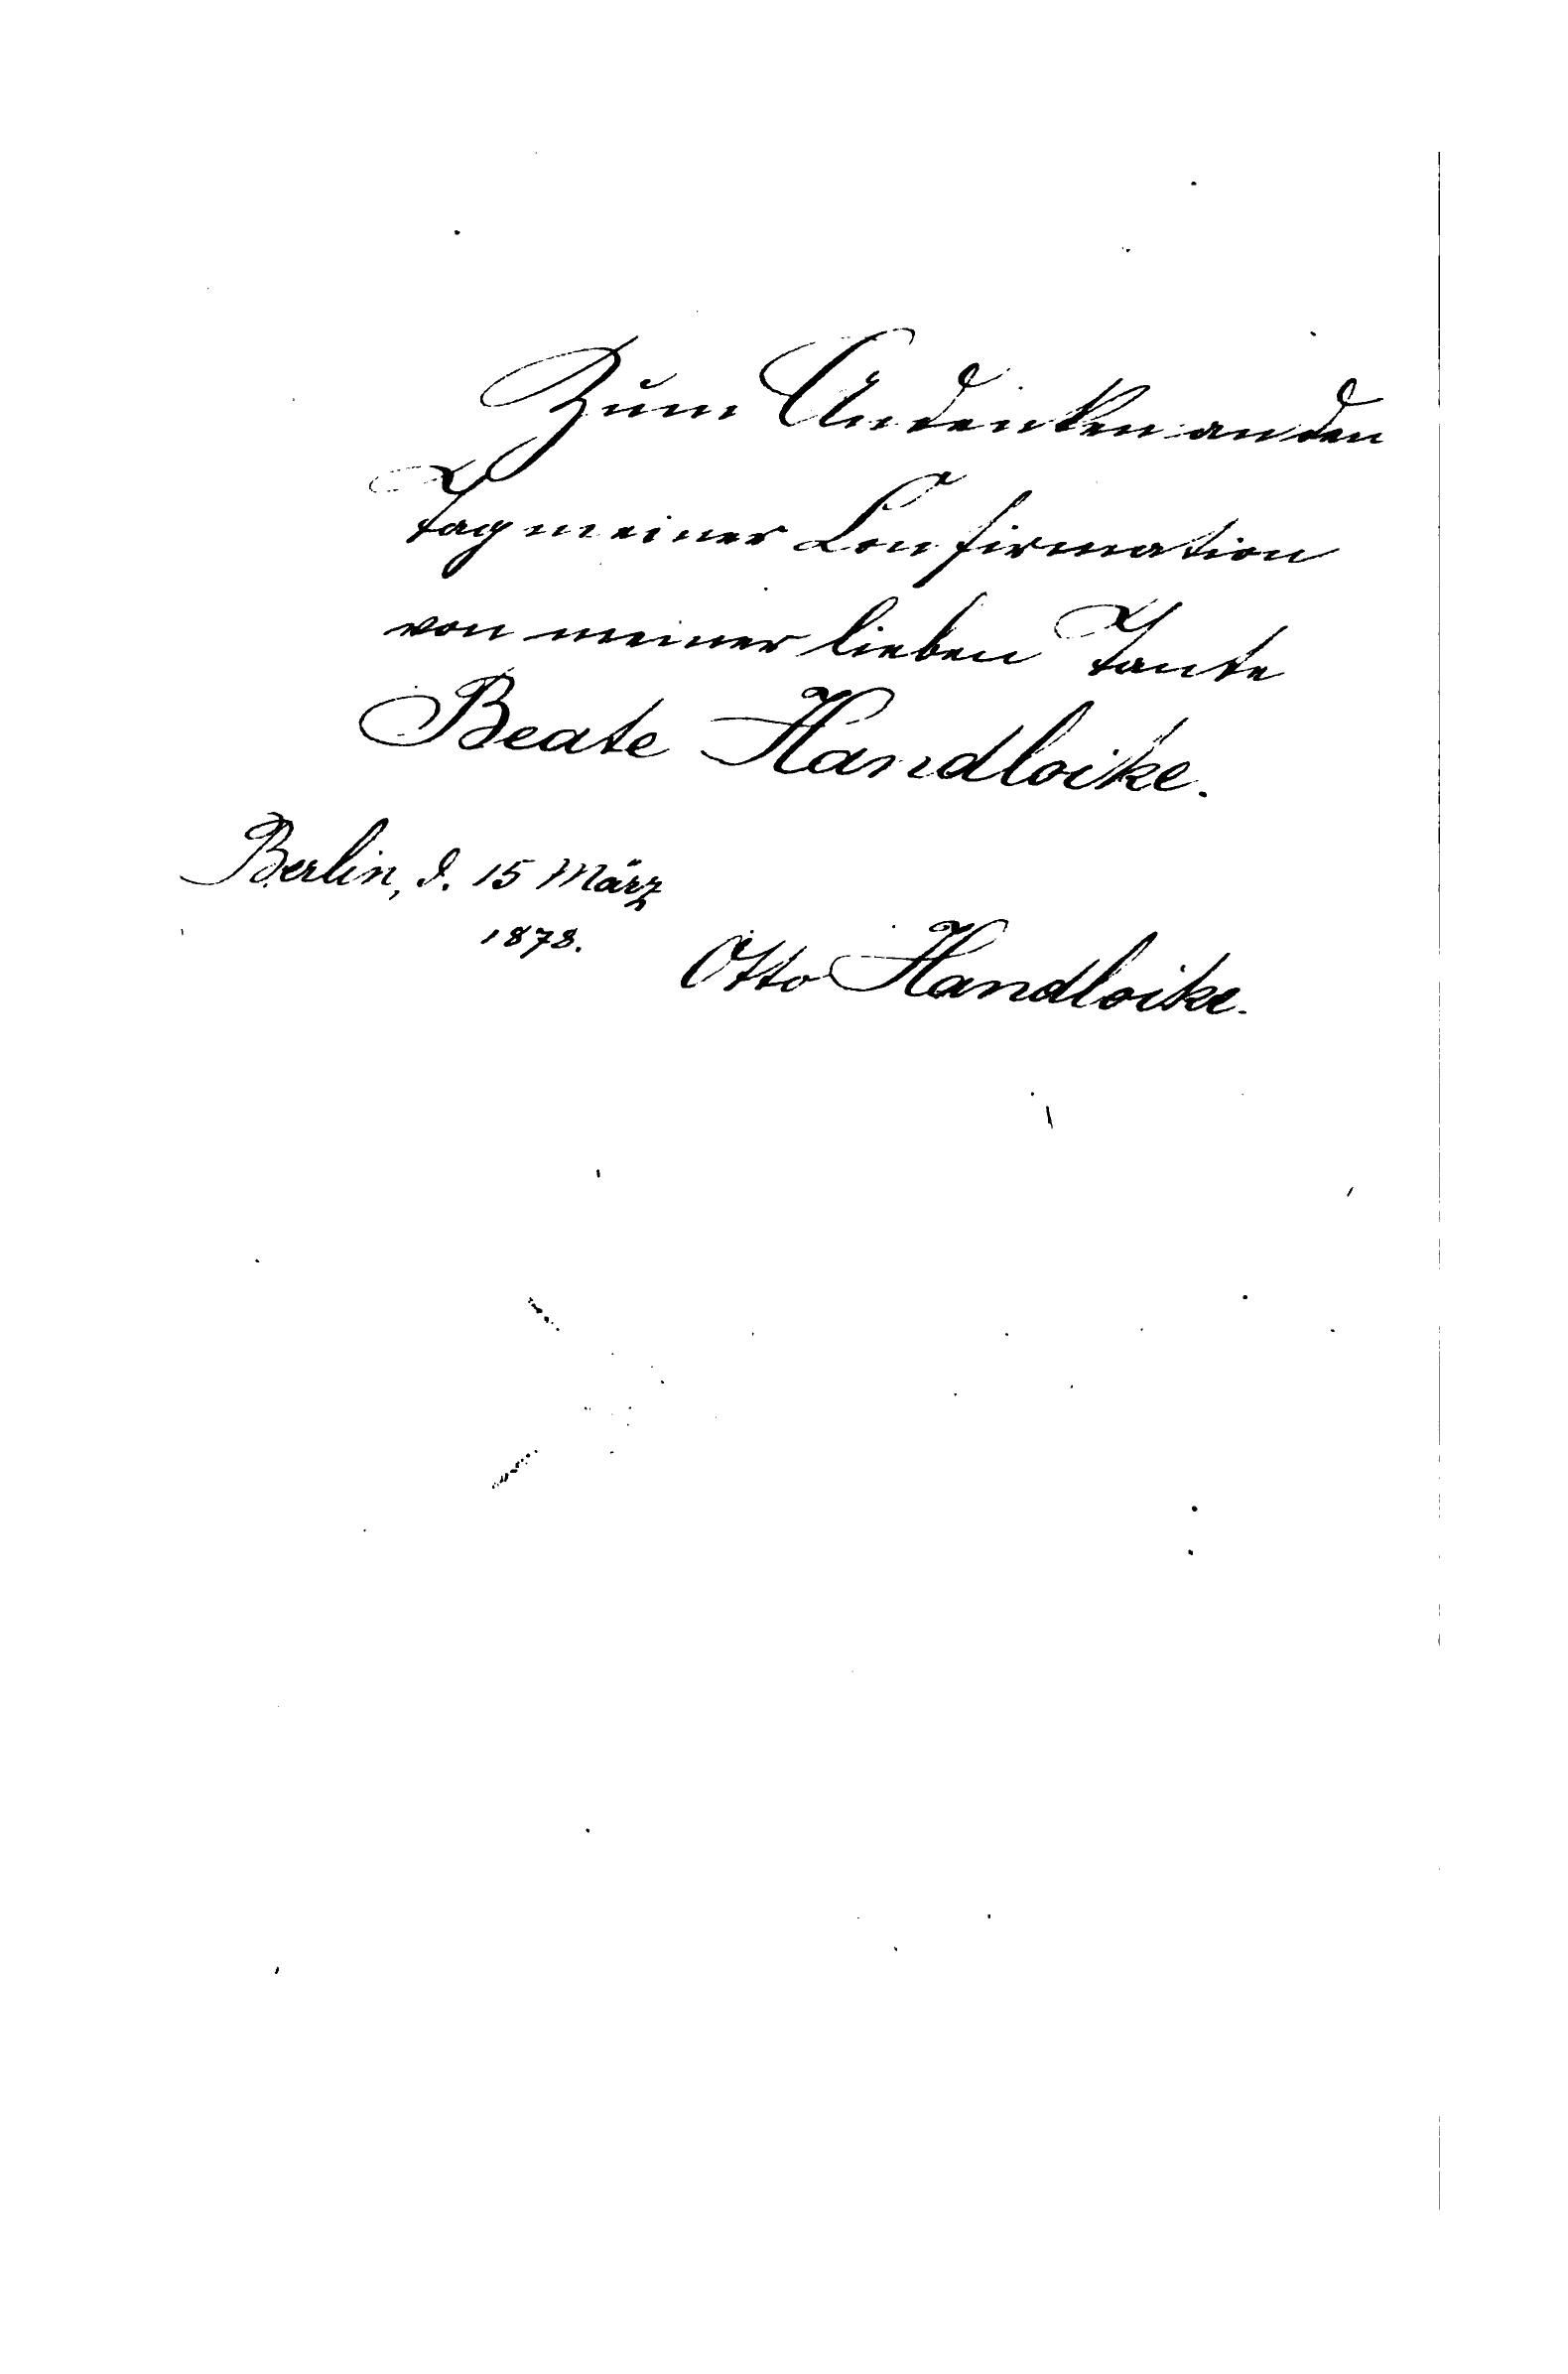 Zum Andenken an den
Tag meiner Confirmation
von meiner lieben Tante
Beate Handloike.
Berlin, d. 15 März
1878.
Otto Handloike.